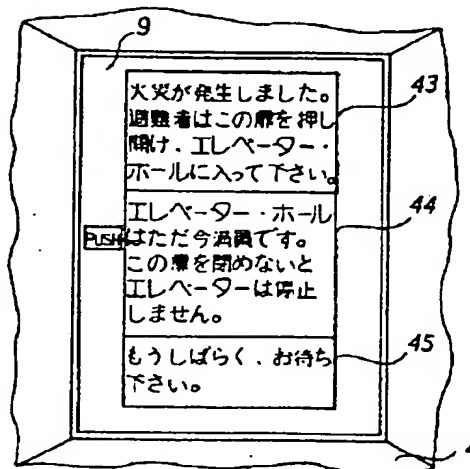 9
火災が発生しました。
避難者はこの扉を押し
開け、エレベーター・
ホールに入って下さい。
43
エレベーター・ホール
はただ今満員です。
この扉を閉めないと
エレベーターは停止
しません。
44
PUSH
もうしばらく、お待ち
下さい。
45